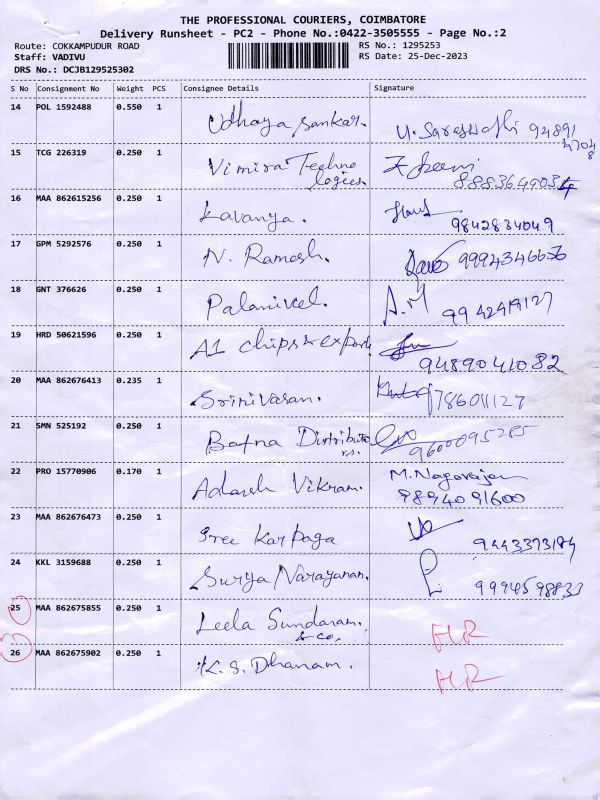 THE PROFESSIONAL COURIERS, COIMBATORE
Delivery Runsheet - PC2 - Phone No.:0422-3505555 - Page No.:2
Route: COKKAMPUDUR ROAD RS No.: 1295253
Staff: VADIVU RS Date: 25-Dec-2023
DRS No.: DCJB129525302
S No Consignment No Weight PCS Consignee Details Signature
14 POL 1592488 0.550 1 Udhaya Sankar. U. Saraswathi 94891
15 TCG 226319 0.250 1 Vimira Techno
logies.
16 MAA 862615256 0.250 1 Kavanya. 9842834049
17 GPM 5292576 0.250 1 N. Ramesh. 9994346656
18 GNT 376626 0.250 1 Palanivel. A.M 9942419127
19 HRD 50621596 0.250 1 A1 chips & exports 9489041082
20 MAA 862676413 0.235 1 Srinivasan. 9786011127
21 SMN 525192 0.250 1 Bafna Distributo
rs. 9600095285
22 PRO 15770906 0.170 1 Adarsh Vikram. M. Nagarajan
9894091600
23 MAA 862676473 0.250 1 Sree Karpaga
24 KKL 3159688 0.250 1 Surya Narayanan. 9994598833
25 MAA 862675855 0.250 1 Leela Sundaram.
& co.
26 MAA 862675902 0.250 1 K. S. Dhanam.